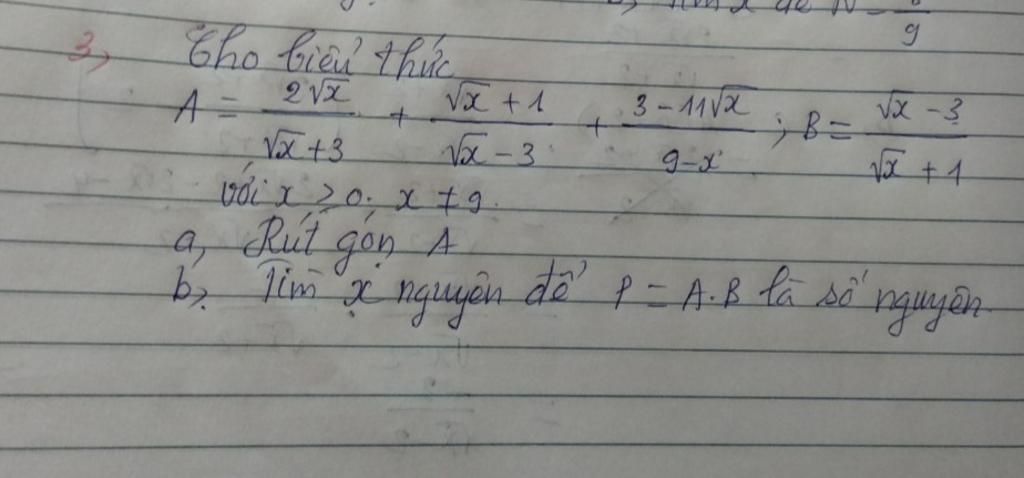 9
3, Cho biểu thức
A = 2√x / (√x + 3) + (√x + 1) / (√x - 3) + (3 - 11√x) / (9 - x) ; B = (√x - 3) / (√x + 1)
với x ≥ 0. x ≠ 9.
a, Rút gọn A
b, Tìm x nguyên để P = A.B là số nguyên